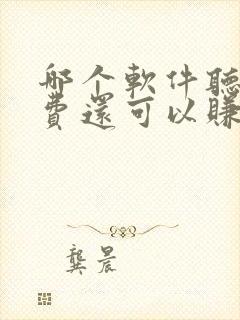 哪个軟件聽
費還可以賺
龔晨